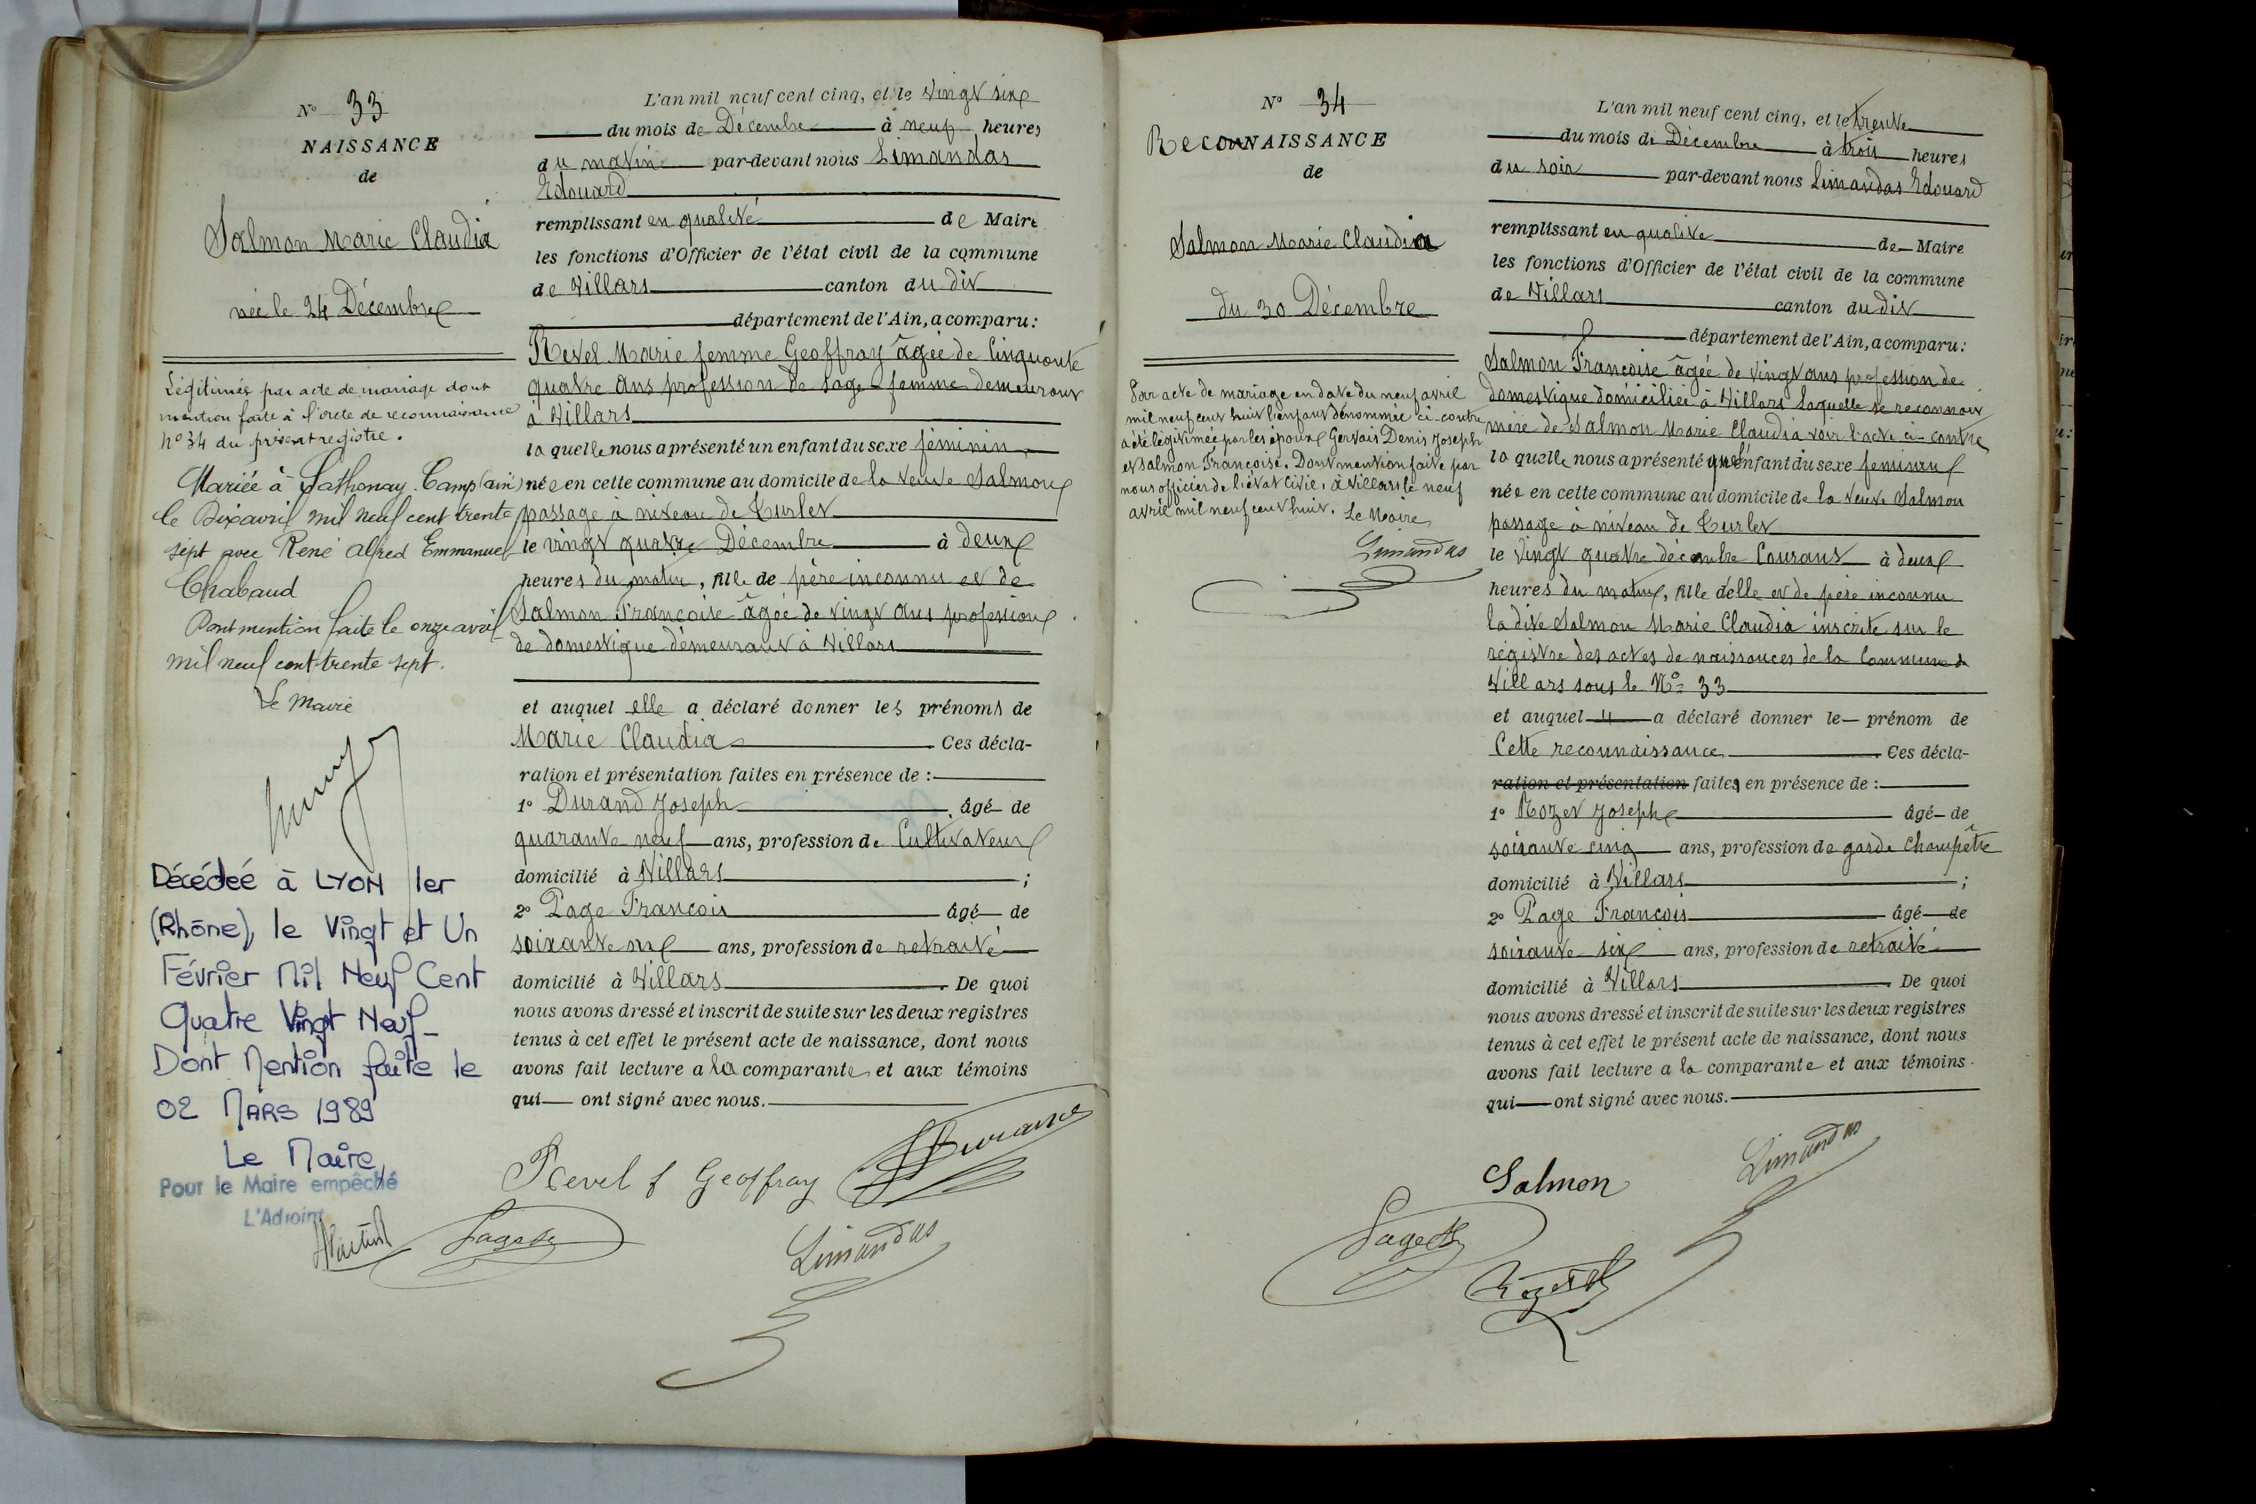 N° 33
NAISSANCE
de
Salmon Marie Claudia
née le 24 Décembre
Légitimée par acte de mariage dont
mention faite à l'acte de reconnaissance
N° 34 du présent registre.
Mariée à Sathonay-Camp (ain)
le Dix avril mil neuf cent trente
sept avec René Alfred Emmanuel
Chabaud
Dont mention faite le onze avril
mil neuf cent trente sept.
Le Maire
Décédée à LYON 1er
(Rhône), le Vingt et Un
Février Mil Neuf Cent
Quatre Vingt Neuf_
Dont Mention faite le
02 MARS 1989
Le Maire,
Pour le Maire empêché
L'Adjoint
L'an mil neuf cent cinq, et le vingt six
du mois de Décembre à neuf heures
du matin par-devant nous Limandas
Edouard
remplissant en qualité de Maire
les fonctions d'Officier de l'état civil de la commune
de Villars canton du dit
département de l'Ain, a comparu:
Revel Marie femme Geoffray âgée de Cinquante
quatre ans profession de sage-femme demeurant
à Villars
la quelle nous a présenté un enfant du sexe féminin
née en cette commune au domicile de la veuve Salmon
passage à niveau de Curlet
le vingt quatre Décembre à deux
heures du matin, fille de père inconnu et de
Salmon Francoise âgée de vingt ans profession
de domestique demeurant à Villars
et auquel elle a déclaré donner les prénoms de
Marie Claudia Ces décla-
ration et présentation faites en présence de :
1° Durand Joseph âgé de
quarante neuf ans, profession de Cultivateur
domicilié à Villars ;
2° Page Francois âgé de
soixante six ans, profession de retraité
domicilié à Villars De quoi
nous avons dressé et inscrit de suite sur les deux registres
tenus à cet effet le présent acte de naissance, dont nous
avons fait lecture a la comparante et aux témoins
qui ont signé avec nous.
Revel f Geoffray
Durand
Page
Limandas
N° 34
RecoNNAISSANCE
de
Salmon Marie Claudia
du 30 Décembre
Par acte de mariage en date du neuf avril
mil neuf cent huit l'enfant dénommée ci-contre
a été légitimée par les époux Gervais Denis Joseph
et Salmon Francoise. Dont mention faite par
nous officier de l'état Civil, à Villars le neuf
avril mil neuf cent huit. Le Maire
Limandas
L'an mil neuf cent cinq, et le trente
du mois de Décembre à trois heures
du soir par-devant nous Limandas Edouard
remplissant en qualité de Maire
les fonctions d'Officier de l'état civil de la commune
de Villars canton du dit
département de l'Ain, a comparu:
Salmon Francoise âgée de vingt ans profession de
domestique domiciliée à Villars laquelle se reconnait
mère de Salmon Marie Claudia voir l'acte ci-contre
la quelle nous a présenté enfant du sexe feminin
née en cette commune au domicile de la veuve Salmon
passage à niveau de Curlet
le vingt quatre décembre Courant à deux
heures du matin, fille d'elle et de père inconnu
la dite Salmon Marie Claudia inscrite sur le
régistre des actes de naissances de la Commune de
Villars sous le N° 33
et auquel a déclaré donner le prénom de
Cette reconnaissance Ces décla-
ration et présentation faites en présence de :
1° Rozet Joseph âgé de
soixante cinq ans, profession de garde Champêtre
domicilié à Villars ;
2° Page Francois âgé de
soixante six ans, profession de retraité
domicilié à Villars De quoi
nous avons dressé et inscrit de suite sur les deux registres
tenus à cet effet le présent acte de naissance, dont nous
avons fait lecture a la comparante et aux témoins
qui ont signé avec nous.
Salmon
Limandas
Page
Rozet